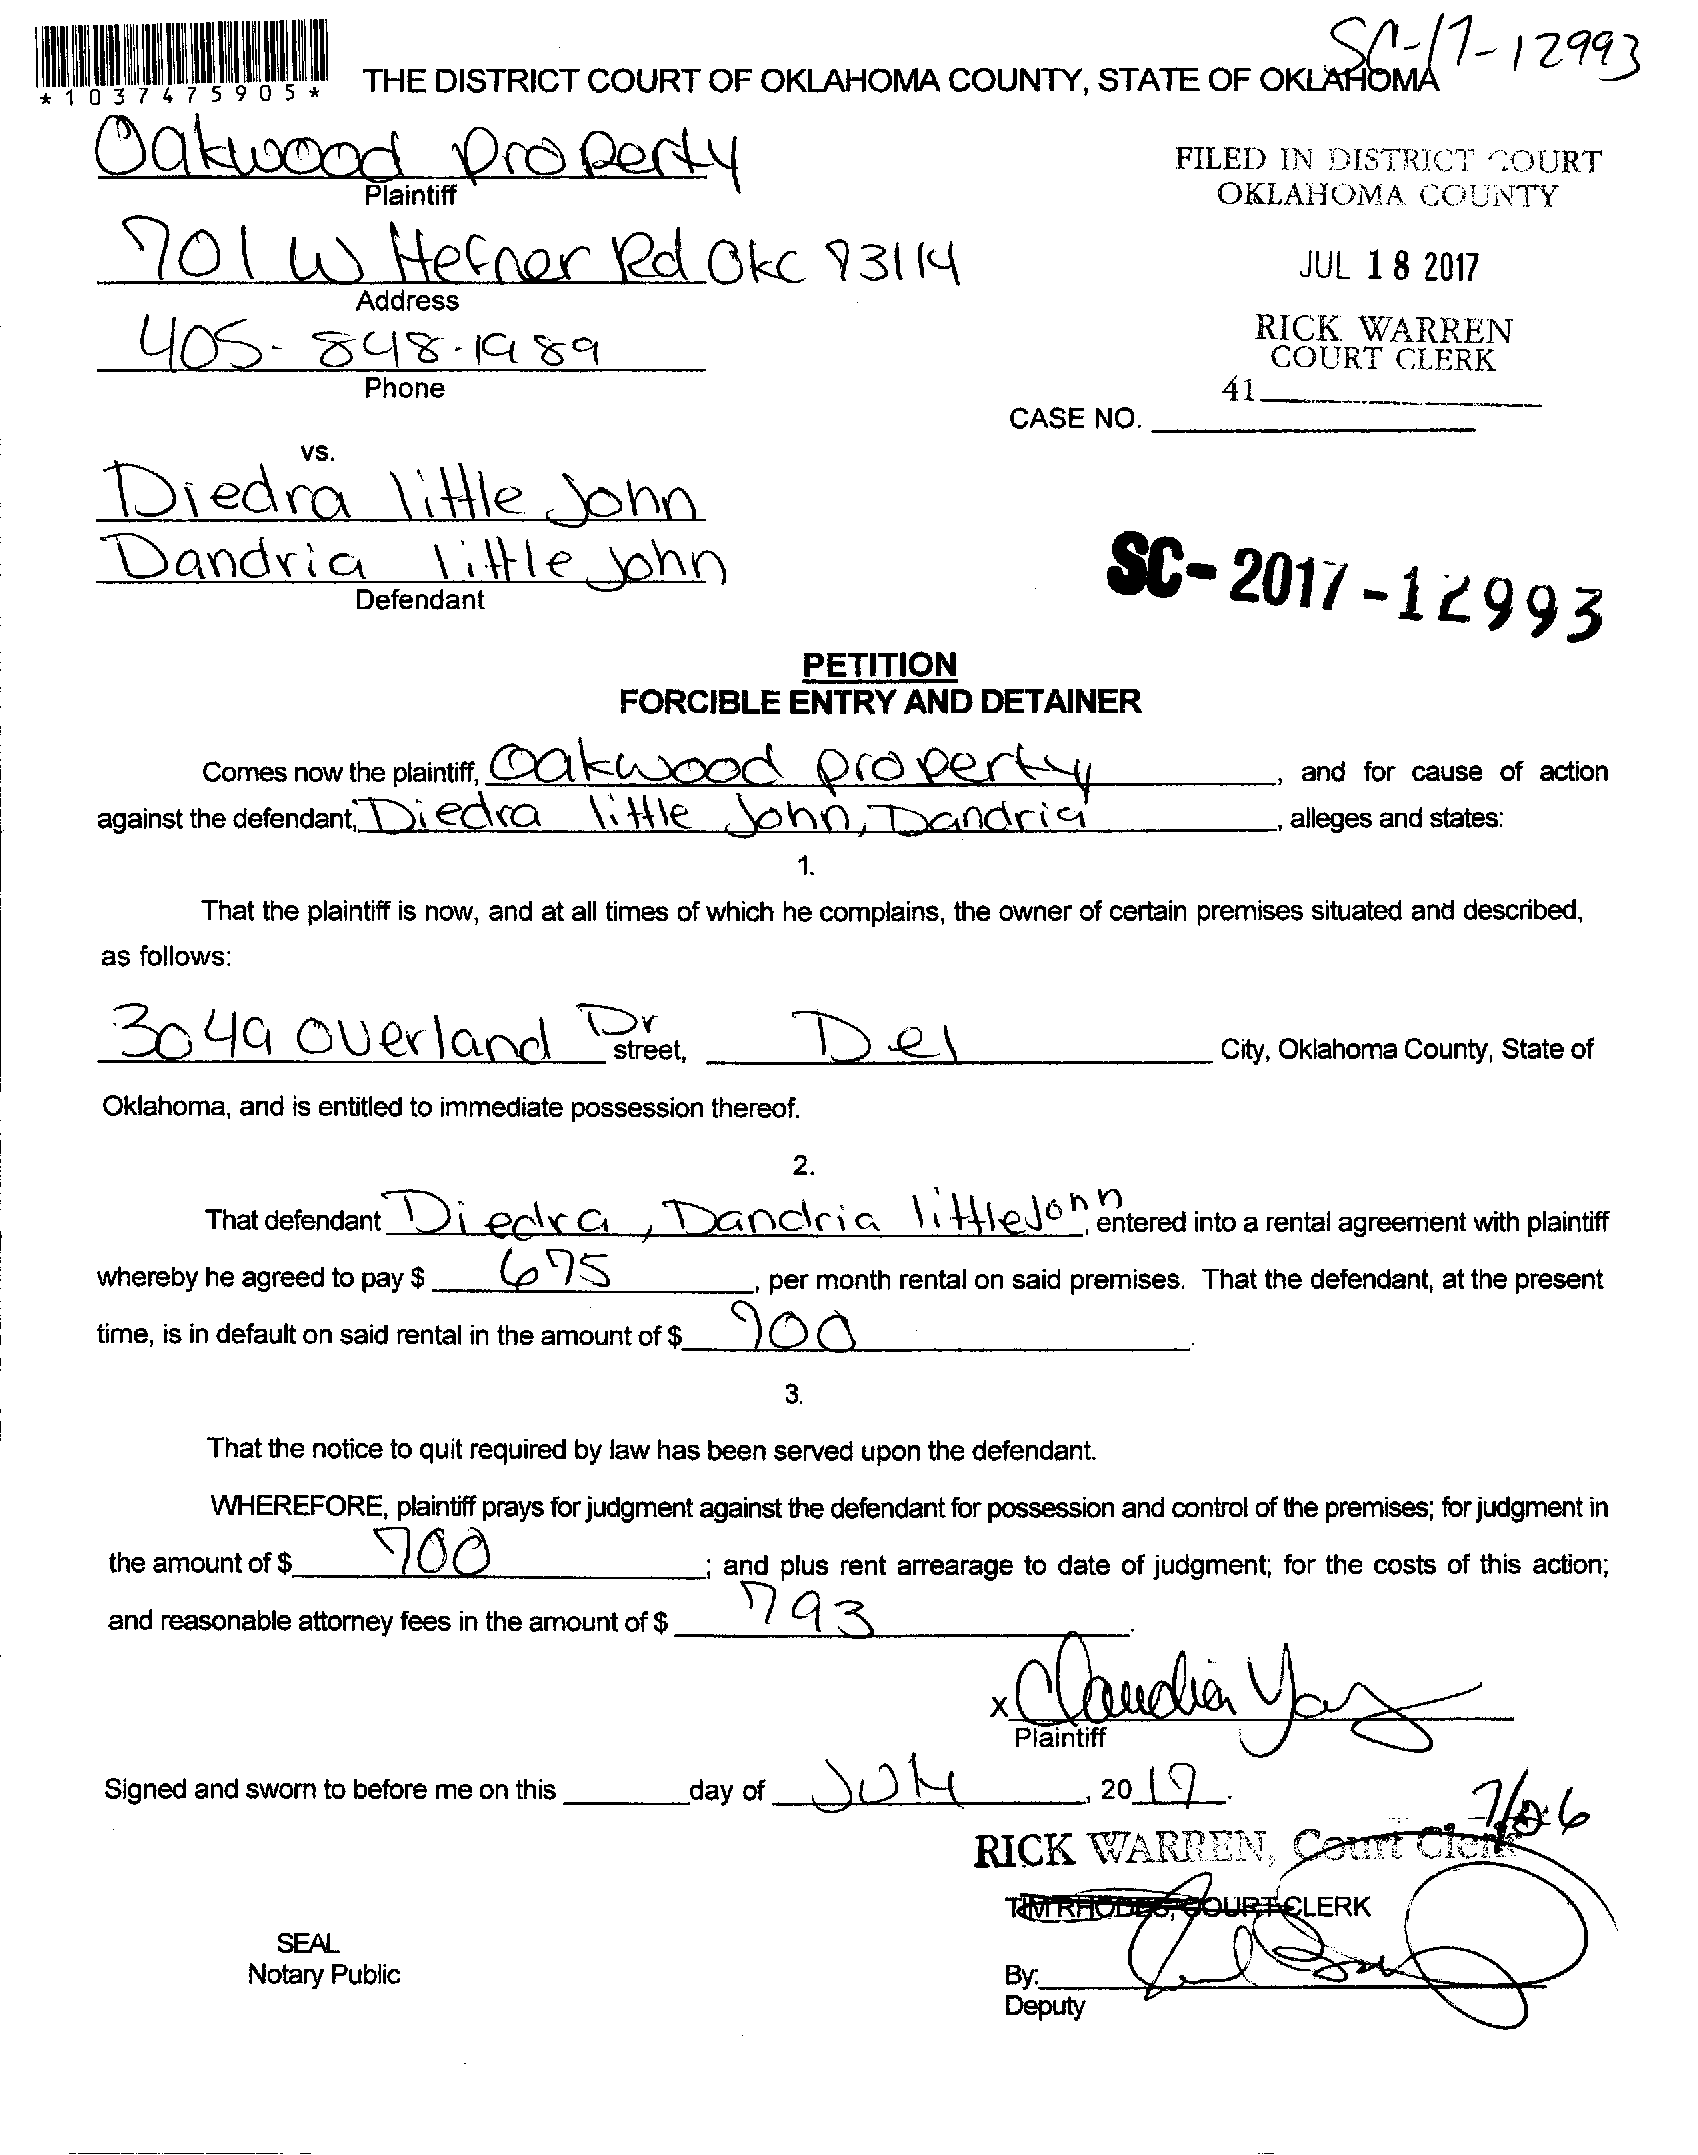 SC-17-12993
*1037475905*
THE DISTRICT COURT OF OKLAHOMA COUNTY, STATE OF OKLAHOMA
Oakwood Property
Plaintiff
FILED IN DISTRICT COURT
OKLAHOMA COUNTY
701 W Hefner Rd OKC 73114
Address
JUL 18 2017
405-848-1989
Phone
RICK WARREN
COURT CLERK
41
CASE NO.
vs.
Diedra little John
Dandria little John
Defendant
SC-2017-12993
PETITION
FORCIBLE ENTRY AND DETAINER
Comes now the plaintiff, Oakwood property, and for cause of action
against the defendant, Diedra little John, Dandria, alleges and states:
1.
That the plaintiff is now, and at all times of which he complains, the owner of certain premises situated and described,
as follows:
3049 Overland Dr street, Del City, Oklahoma County, State of
Oklahoma, and is entitled to immediate possession thereof.
2.
That defendant Diedra, Dandria littleJohn, entered into a rental agreement with plaintiff
whereby he agreed to pay $ 675, per month rental on said premises. That the defendant, at the present
time, is in default on said rental in the amount of $ 700.
3.
That the notice to quit required by law has been served upon the defendant.
WHEREFORE, plaintiff prays for judgment against the defendant for possession and control of the premises; for judgment in
the amount of $ 700; and plus rent arrearage to date of judgment; for the costs of this action;
and reasonable attorney fees in the amount of $ 793.
x Claudia
Plaintiff
Signed and sworn to before me on this day of July, 2017.
RICK WARREN, Court Clerk
TIM RHODES, COURT CLERK
SEAL
Notary Public
By:
Deputy